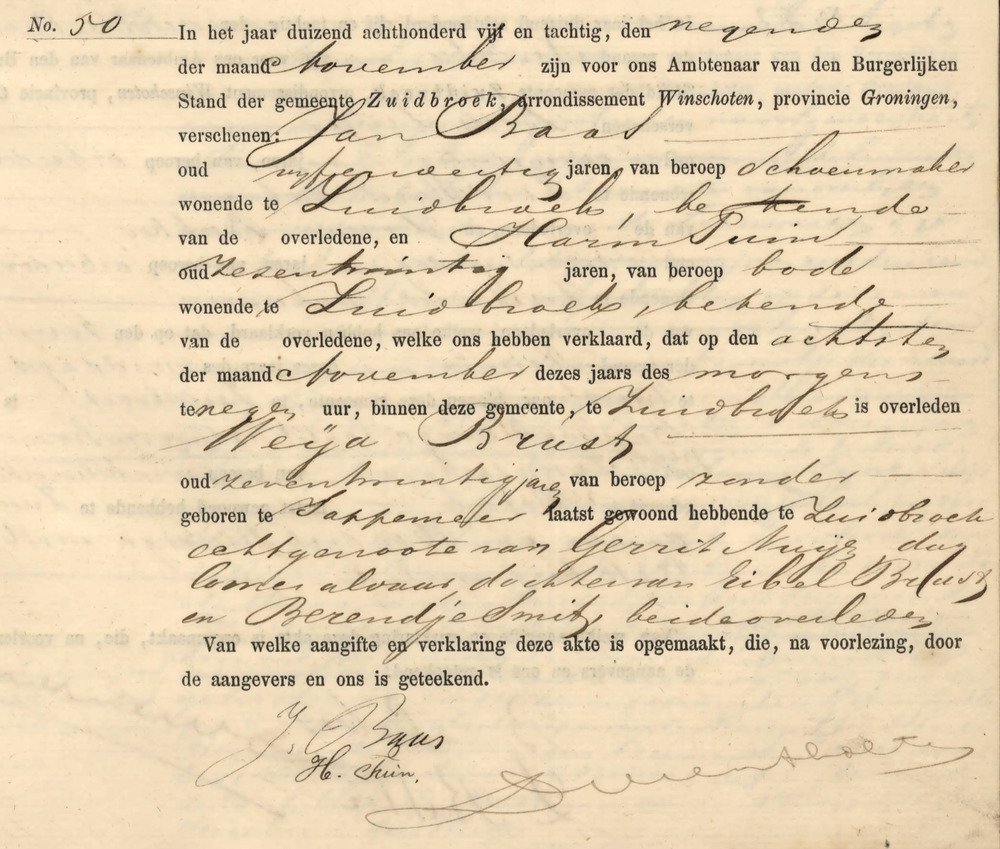 No. 50
In het jaar duizend achthonderd vijf en tachtig, den negenden
der maand November zijn voor ons Ambtenaar van den Burgerlijken
Stand der gemeente Zuidbroek, arrondissement Winschoten, provincie Groningen,
verschenen: Jan Baas
oud vijfenveertig jaren, van beroep Schoenmaker
wonende te Zuidbroek, bekende
van de overledene, en Harm Tuin
oud zesentwintig jaren, van beroep bode
wonende te Zuidbroek, bekende
van de overledene, welke ons hebben verklaard, dat op den achtsten
der maand November dezes jaars des morgens
te negen uur, binnen deze gemeente, te Zuidbroek is overleden
Weija Brust
oud zeventwintig jaren van beroep zonder
geboren te Sappemeer laatst gewoond hebbende te Zuidbroek
echtgenoote van Gerrit Nuijs dag
looner aldaar, dochter van Eibel Brust
en Berendje Smit, beide overleden
Van welke aangifte en verklaring deze akte is opgemaakt, die, na voorlezing, door
de aangevers en ons is geteekend.
J. Baas
H. Tuin.